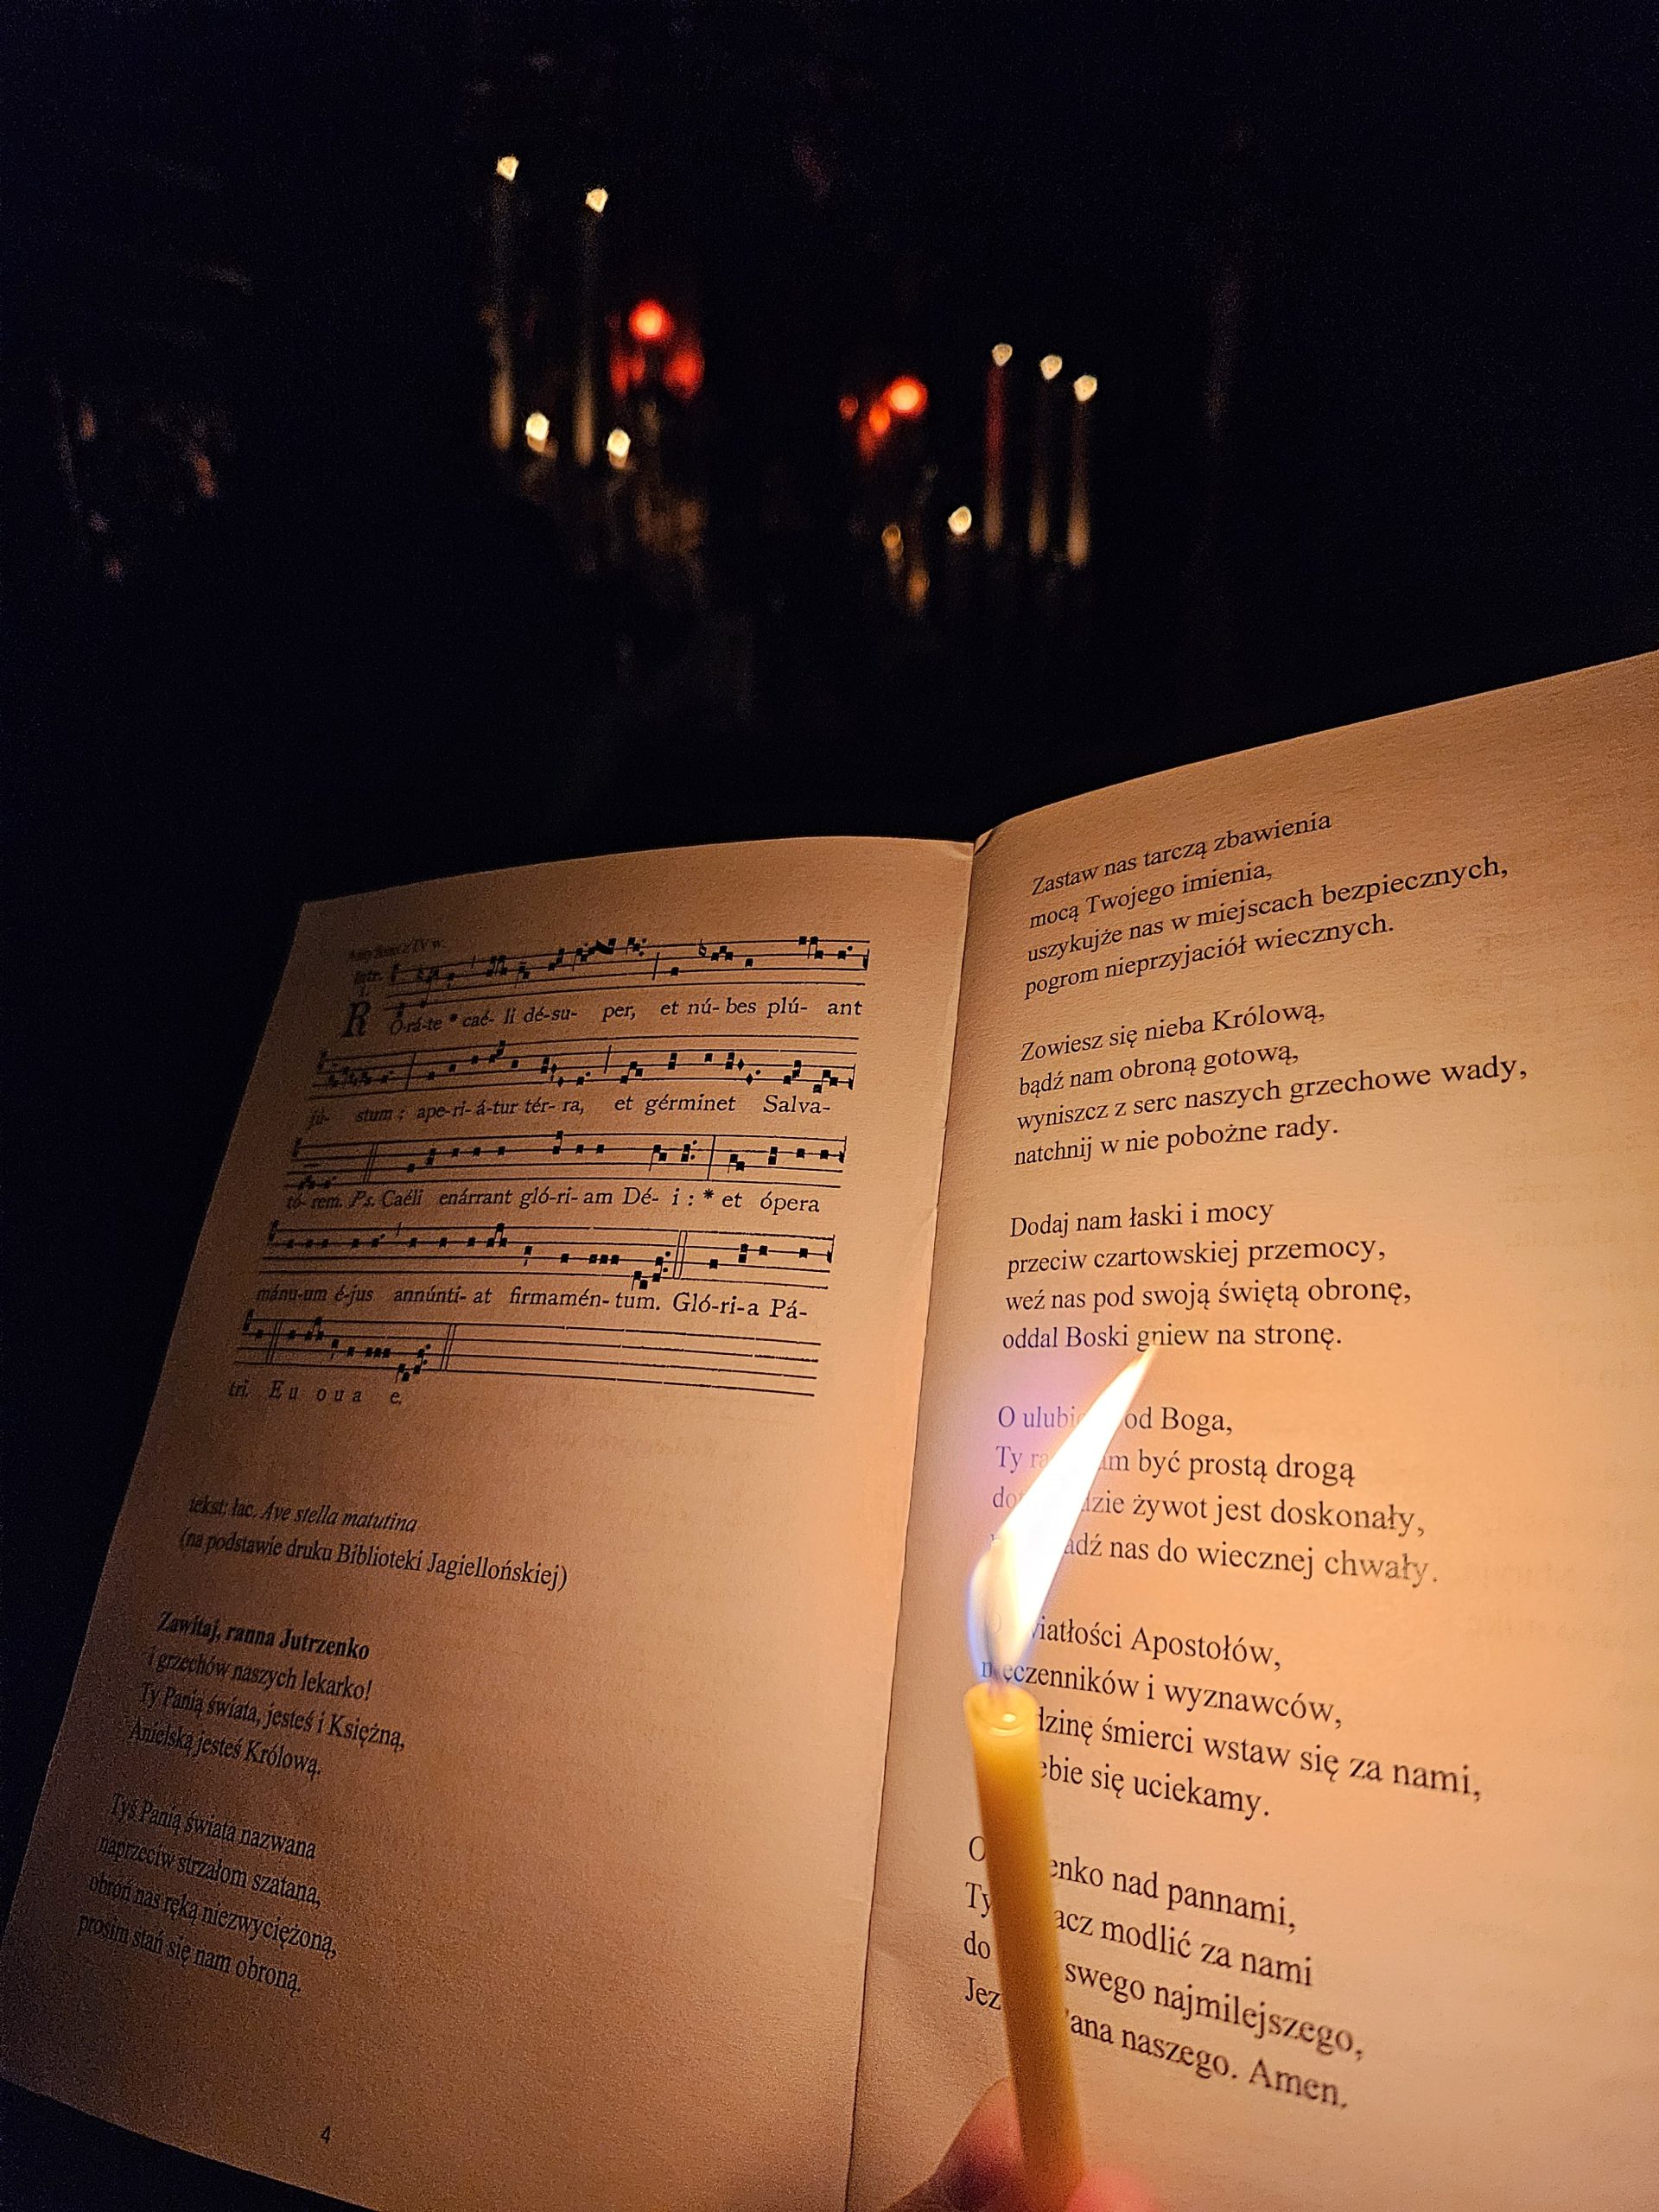 Intr.
R O-rá-te * caé- li dé-su- per, et nú- bes plú- ant
jú- stum : ape-ri- á-tur tér- ra, et gérminet Salva-
tó- rem. Ps. Caéli enárrant gló-ri- am Dé- i : * et ópera
mánu-um é-jus annúnti- at firmamén- tum. Gló-ri-a Pá-
tri. E u o u a e.
tekst: łac. Ave stella matutina
(na podstawie druku Biblioteki Jagiellońskiej)
Zawitaj, ranna Jutrzenko
i grzechów naszych lekarko!
Ty Panią świata, jesteś i Księżną,
Anielską jesteś Królową.
Tyś Panią świata nazwana
naprzeciw strzałom szatana,
obroń nas ręką niezwyciężoną,
prosim stań się nam obroną.
4
Zastaw nas tarczą zbawienia
mocą Twojego imienia,
uszykujże nas w miejscach bezpiecznych,
pogrom nieprzyjaciół wiecznych.
Zowiesz się nieba Królową,
bądź nam obroną gotową,
wyniszcz z serc naszych grzechowe wady,
natchnij w nie pobożne rady.
Dodaj nam łaski i mocy
przeciw czartowskiej przemocy,
weź nas pod swoją świętą obronę,
oddal Boski gniew na stronę.
O od Boga,
Ty być prostą drogą
żywot jest doskonały,
nas do wiecznej chwały.
Apostołów,
męczenników i wyznawców,
śmierci wstaw się za nami,
się uciekamy.
O nad pannami,
Ty modlić za nami
do swego najmilejszego,
naszego. Amen.